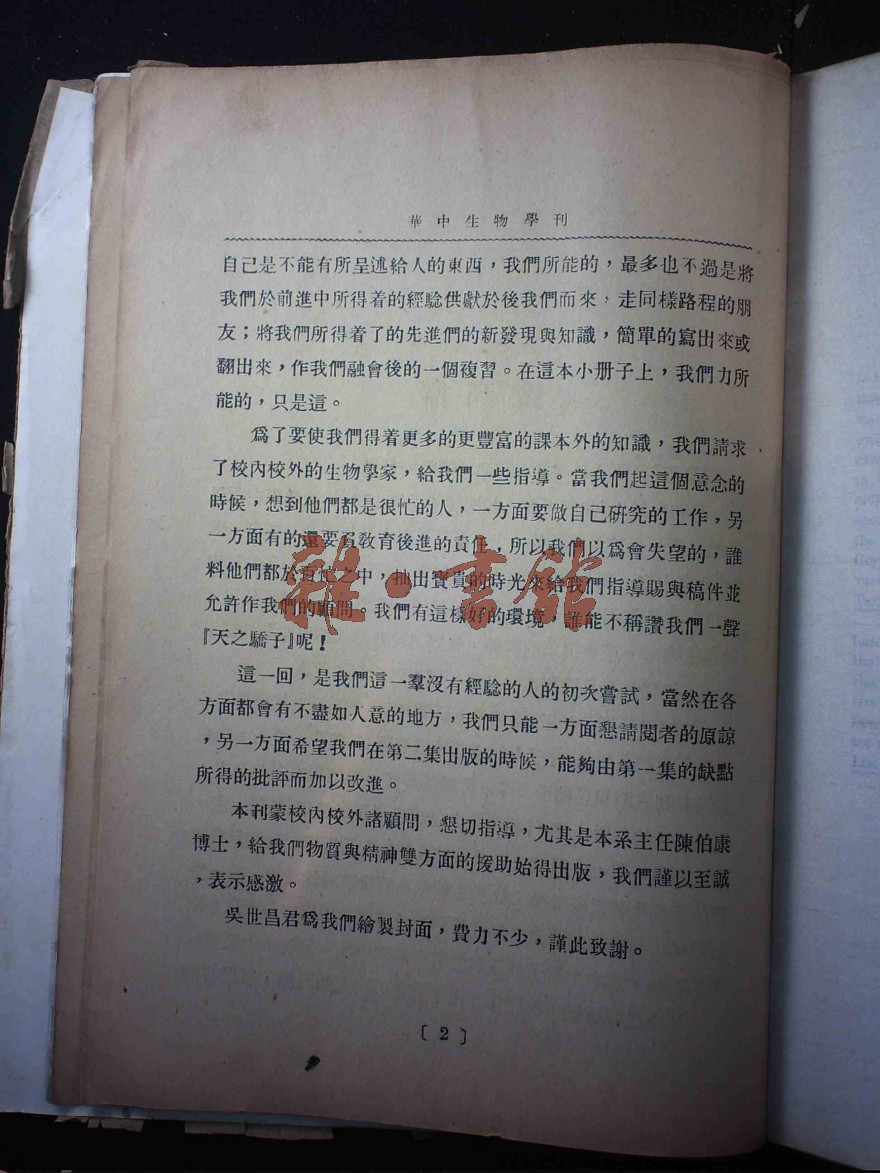 華中生物學刊
自己是不能有所呈述給人的東西，我們所能的，最多也不過是將
我們於前進中所得着的經騐供獻於後我們而來，走同樣路程的朋
友；將我們所得着了的先進們的新發現與知識，簡單的寫出來或
翻出來，作我們融會後的一個複習。在這本小册子上，我們力所
能的，只是這。
爲了要使我們得着更多的更豐富的課本外的知識，我們請求
了校內校外的生物學家，給我們一些指導。當我們起這個意念的
時候，想到他們都是很忙的人，一方面要做自己研究的工作，另
一方面有的還要負敎育後進的責任，所以我們以爲會失望的，誰
料他們都於百忙之中，抽出寶貴的時光來給我們指導賜與稿件並
允許作我們的顧問。我們有這樣好的環境，誰能不稱讚我們一聲
『天之驕子』呢！
這一回，是我們這一羣沒有經騐的人的初次嘗試，當然在各
方面都會有不盡如人意的地方，我們只能一方面懇請閱者的原諒
，另一方面希望我們在第二集出版的時候，能夠由第一集的缺點
所得的批評而加以改進。
本利蒙校內校外諸顧問，懇切指導，尤其是本系主任陳伯康
博士，給我們物質與精神雙方面的援助始得出版，我們謹以至誠
，表示感激。
吳世昌君爲我們繪製封面，費力不少，謹此致謝。
〔2〕
雜·書館